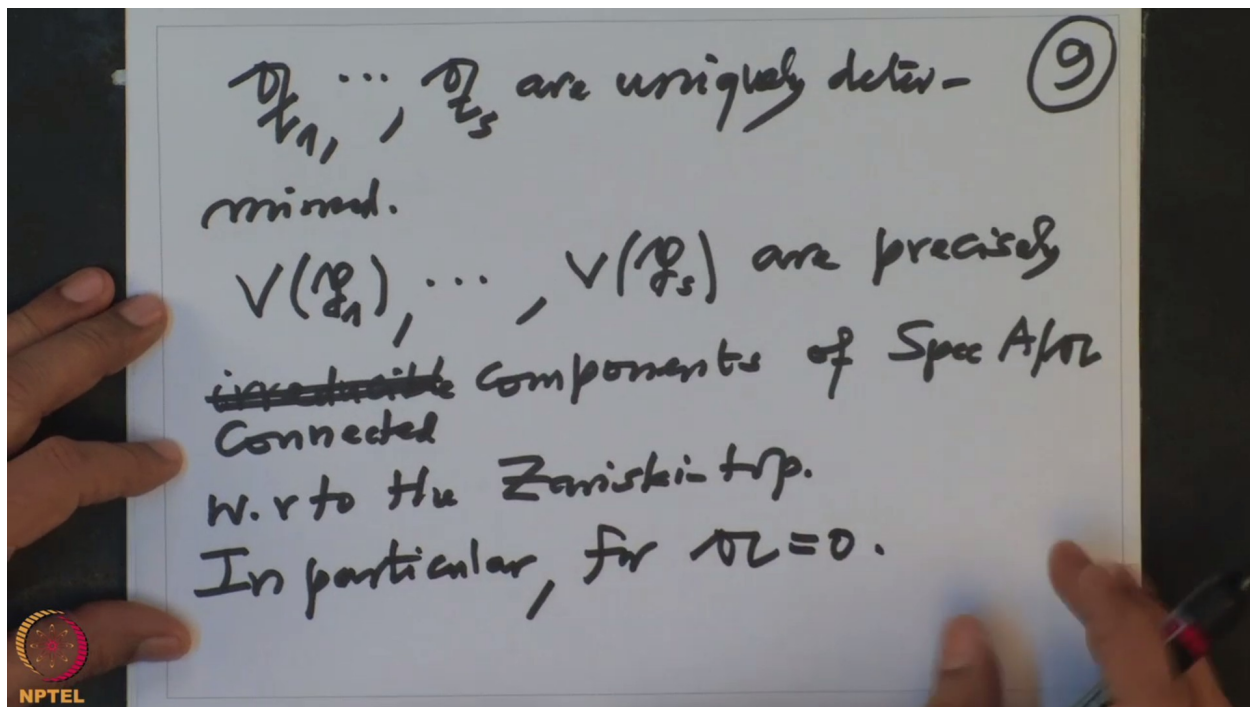 𝔮₁, ..., 𝔮ₛ are uniquely deter-
9
mined.
V(𝔮₁), ..., V(𝔮ₛ) are precisely
irreducible components of Spec A/𝔞
connected
w.r to the Zariski-top.
In particular, for 𝔞 = 0.
NPTEL